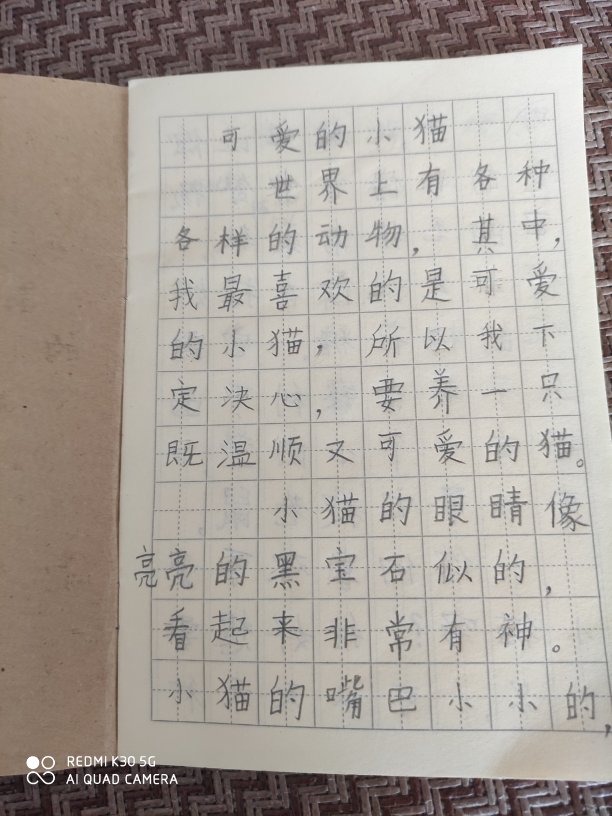 可爱的小猫
世界上有各种
各样的动物，其中，
我最喜欢的是可爱
的小猫，所以我下
定决心，要养一只
既温顺又可爱的猫。
小猫的眼睛像
亮亮的黑宝石似的，
看起来非常有神。
小猫的嘴巴小小的，
REDMI K30 5G
AI QUAD CAMERA